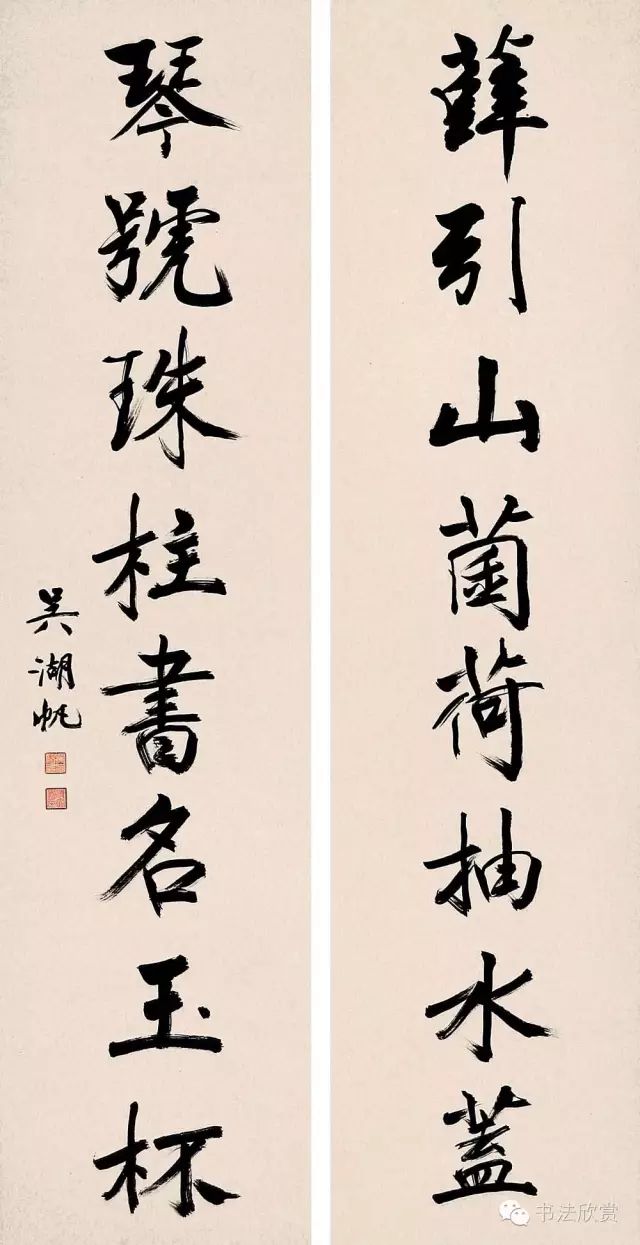 薜引山茵荷抽水蓋
琴號珠柱書名玉杯
吳湖帆
书法欣赏